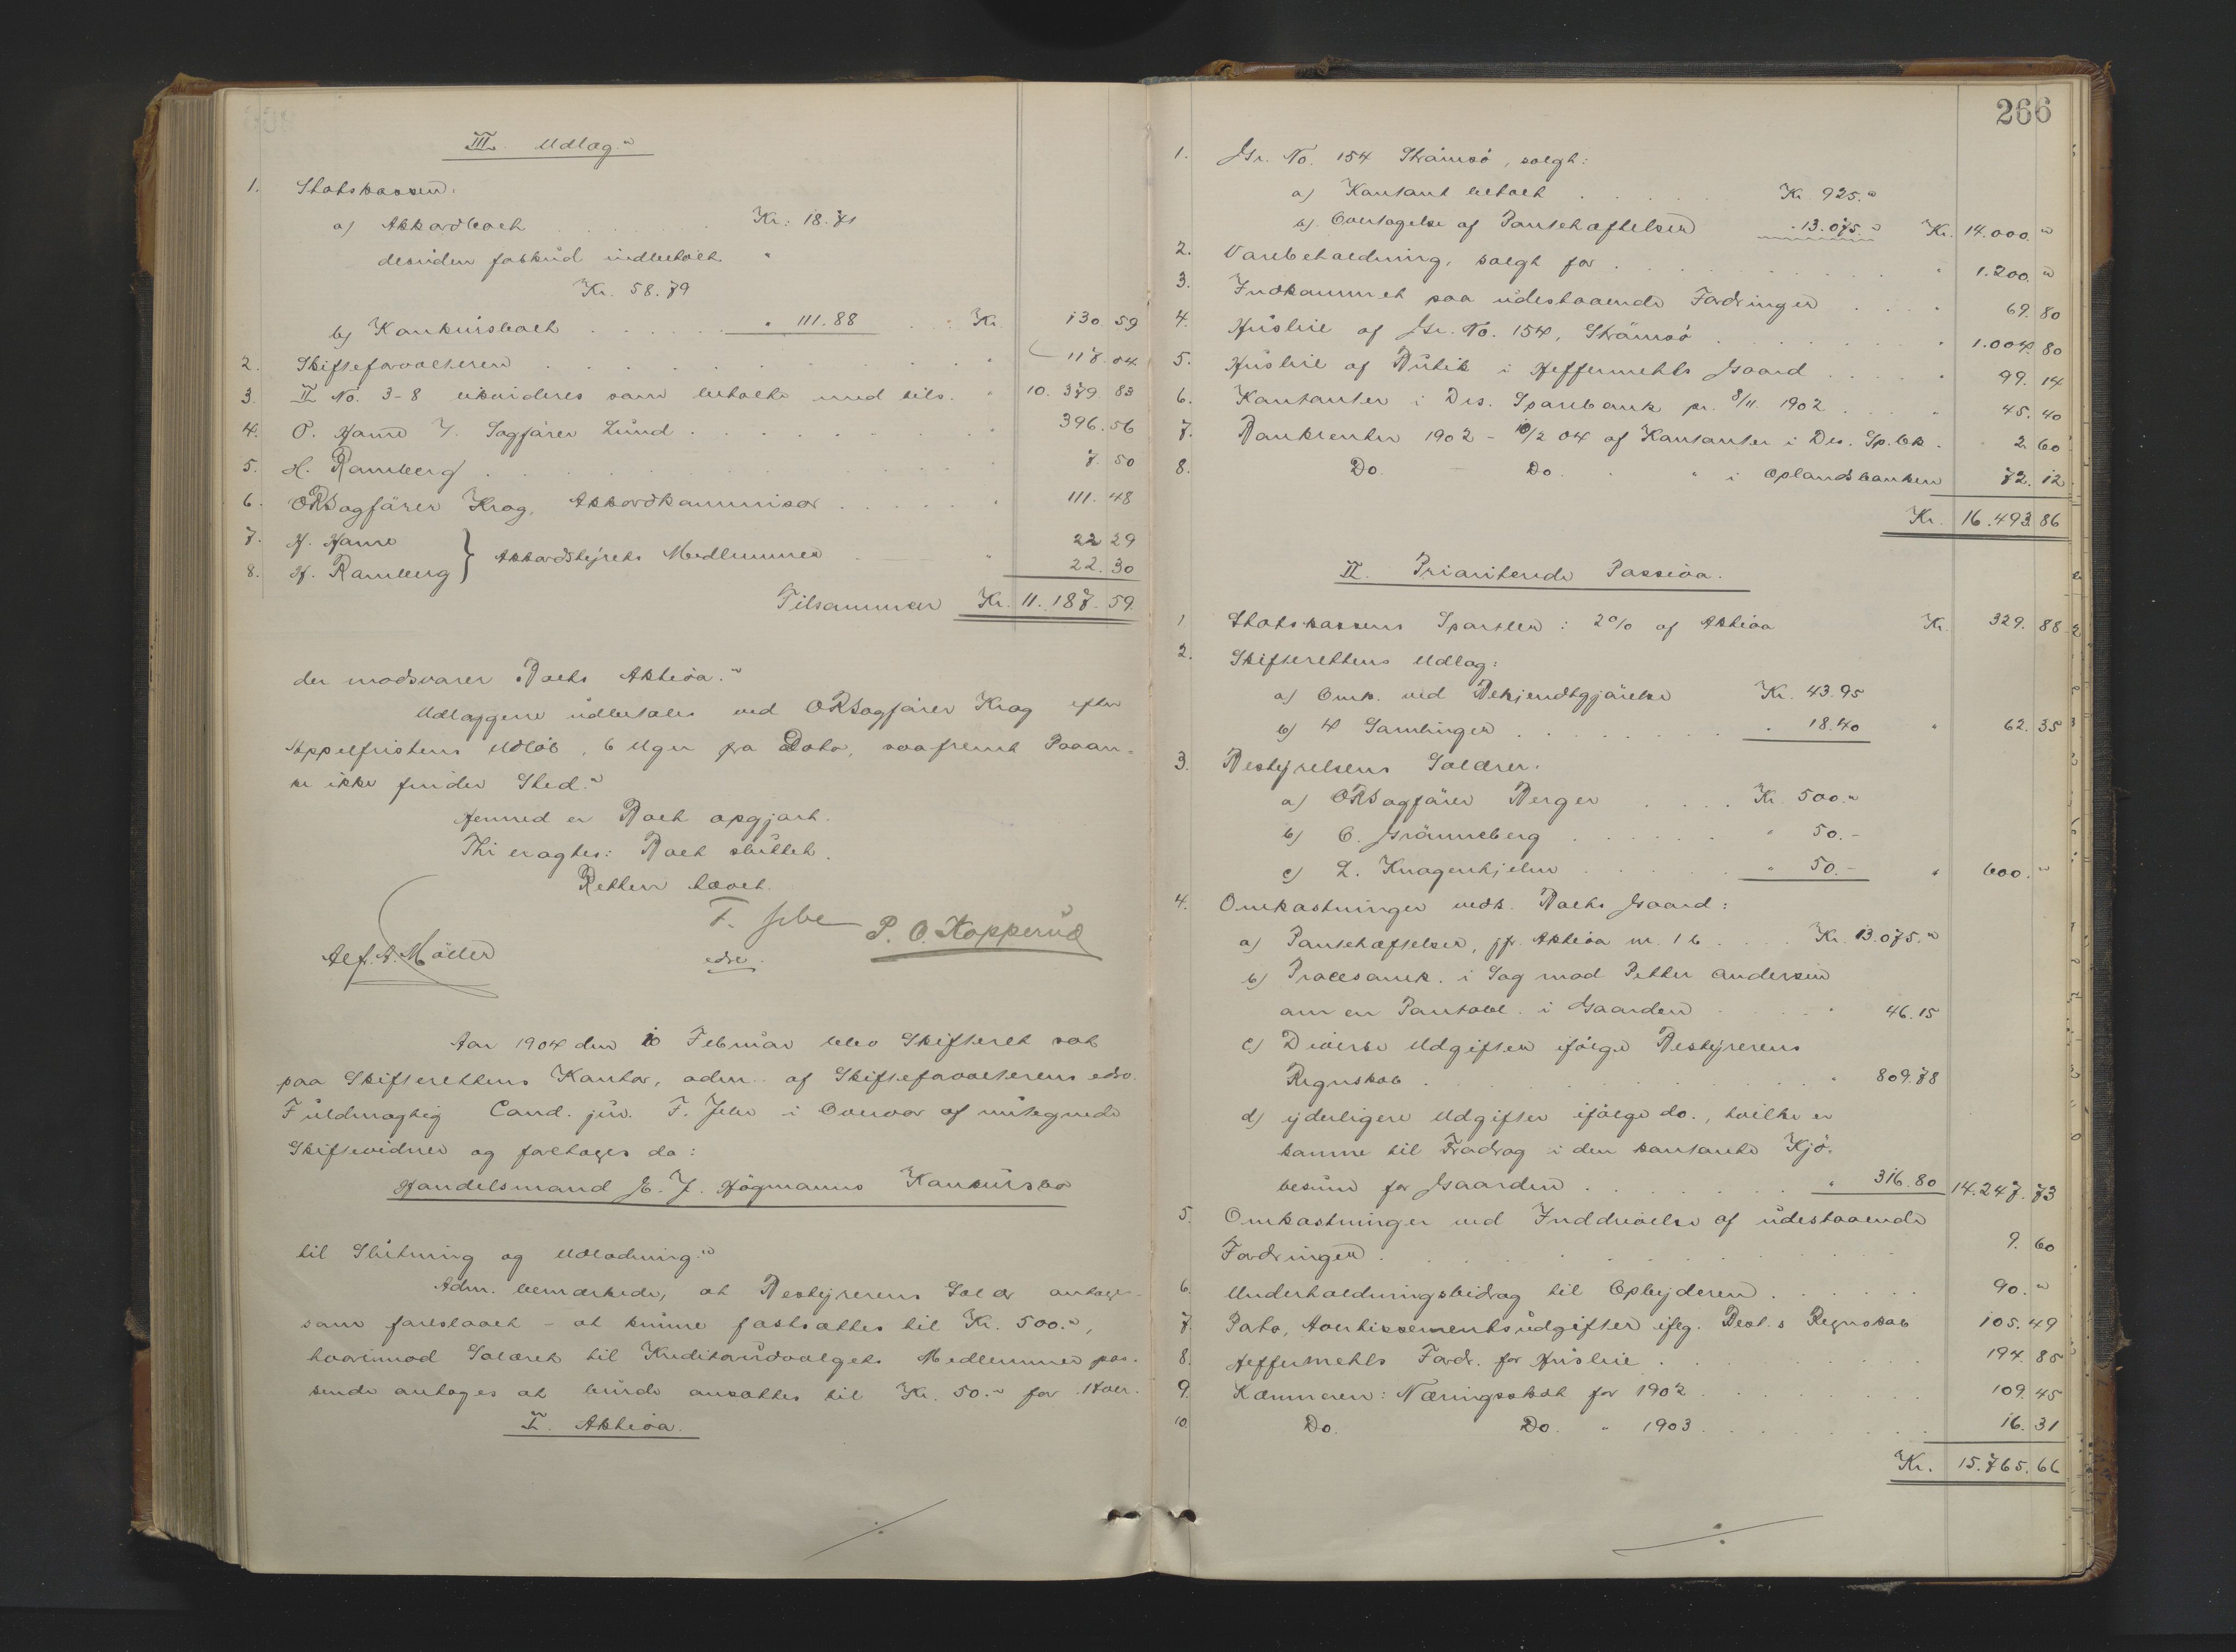 III. Udlæg.
1. Statskassen:
a) Akkordboet . . . . . Kr: 18.71
desuden forskud indbetalt "
Kr. 58.79
b) Konkursboet . . . . . " 111.88 . . Kr. 130 59
2. Skifteforvalteren . . . . . " 117.04
3. II No. 3-8 likvideres som betalte med tils. " 10.379 83
4. O. Hamre f. Sagfører Lund . . . . . " 396.56
5. H. Ramberg . . . . . " 7.50
6. ORSagfører Krog, Akkordkommisær . . . . . " 111.48
7. H. Hamre } Akkordstyrets Medlemmer 22 29
8. H. Ramberg } " 22.30
Tilsammen Kr. 11.187.59
der modsvarer Boets Aktiva.
Udlæggene udbetales ved ORSagfører Krog efter
Appelfristens Udløb, 6 Uger fra Dato, saafremt Paaan-
ke ikke finder Sted.
Hermed er Boet opgjort.
Thi eragtes: Boet sluttet.
Retten hævet.
F. Jebe
edsv.
P. O. Kopperud
Alf. A. Møller
Aar 1904 den 10 Februar blev Skifteret sat
paa Skifterettens Kontor, adm. af Skifteforvalterens edsv.
Fuldmægtig Cand. jur. F. Jebe i Overvær af mitegnede
Skiftevidner og foretages da:
Handelsmand E. J. Høgmanns Konkursbo
til Slutning og Udlodning.
Adm. bemærkede, at Bestyrerens Salær antages
som foreslaaet - at kunne fastsættes til Kr. 500.",
hvorimod Salæret til Kreditorudvalgets Medlemmer pas-
sende antages at burde ansættes til Kr. 50." for Hver.
I. Aktiva.
266
1. Gr. No. 154 Strømsø, solgt:
a) Kontant betalt . . . . . Kr. 925."
b) Overtagelse af Pantehæftelser " 13.075." Kr. 14.000."
2. Varebeholdning, solgt for . . . . . " 1.200."
3. Indkommet paa udestaaende Fordringer . . . . " 69.80
4. Husleie af Gr. No. 154, Strømsø . . . . . " 1.004.80
5. Husleie af Butik i Heffermehls Gaard . . . . . " 99.14
6. Kontanter i Drs. Sparebank pr. 8/11 1902 . . . . " 45.40
7. Bankrenter 1902 - 10/2 04 af Kontanter i Drs. Sp.bk. " 2.60
8. Do. Do. " i Oplandsbanken 72.12
Kr. 16.493.86
II. Prioriterede Passiva.
1 Statskassens Sportler: 2% af Aktiva Kr. 329.88
2. Skifterettens Udlæg:
a) Omk. ved Bekjendtgjørelse Kr. 43.95
b) 4 Samlinger . . . . . " 18.40 " 62.35
3. Bestyrelsens Salærer.
a) ORSagfører Berger . . . . Kr. 500."
b) C. Grønneberg . . . . . " 50.-
c) L. Knagenhjelm . . . . . " 50.- " 600."
4. Omkostninger vedk. Boets Gaard:
a) Pantehæftelser, jfr. Aktiva nr. 1 b . . . . Kr. 13.075."
b) Procesomk. i Sag mod Petter Andersen
om en Pantobl. i Gaarden . . . . " 46.15
c) Diverse Udgifter ifølge Bestyrerens
Regnskab . . . . . " 809.78
d) yderligere Udgifter ifølge do., hvilke er
komne til Fradrag i den kontante Kjø-
besum for Gaarden . . . . . " 316.80 14.247.73
5. Omkostninger ved Inddrivelse af udestaaende
Fordringer . . . . . 9.60
6. Underholdningsbidrag til Opbyderen . . . . . 90."
7. Porto, Avertissementsudgifter iflg. Best.s Regnskab 105.49
8. Heffermehls Fordr. for Husleie . . . . . 194.85
9. Kæmneren: Næringsskat for 1902 . . . . . 109.45
10 Do. Do. " 1903 . . . . . 16.31
Kr. 15.765.66